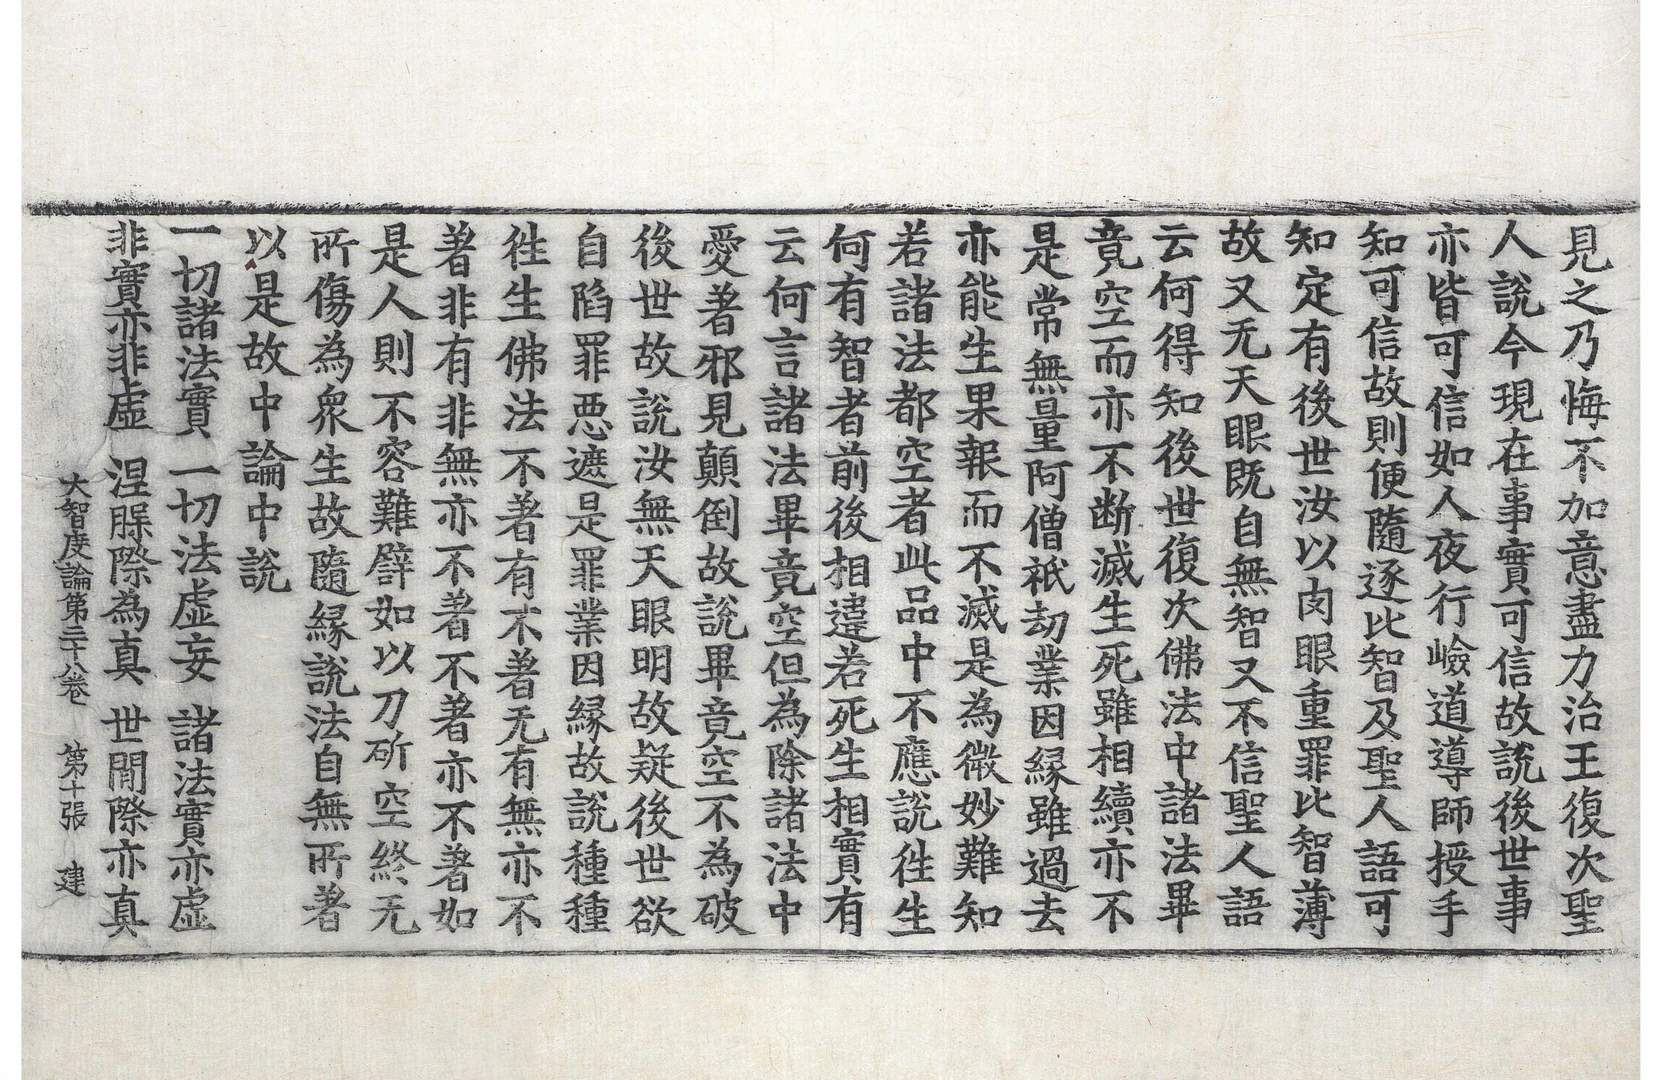 見之乃悔不加意盡力治王復次聖
人說今現在事實可信故說後世事
亦皆可信如人夜行嶮道導師授手
知可信故則便隨逐比智及聖人語可
知定有後世汝以肉眼重罪比智薄
故又无天眼既自無智又不信聖人語
云何得知後世復次佛法中諸法畢
竟空而亦不断滅生死雖相續亦不
是常無量阿僧祇劫業因緣雖過去
亦能生果報而不滅是為微妙難知
若諸法都空者此品中不應說徃生
何有智者前後相違若死生相實有
云何言諸法畢竟空但為除諸法中
愛著邪見顛倒故說畢竟空不為破
後世故說汝無天眼明故疑後世欲
自陷罪惡遮是罪業因緣故說種種
徃生佛法不著有不著无有無亦不
著非有非無亦不著不著亦不著如
是人則不容難譬如以刀斫空終无
所傷為衆生故隨緣說法自無所著
以是故中論中說
一切諸法實 一切法虛妄 諸法實亦虛
非實亦非虛 涅脲際為真 世間際亦真
大智度論第三十八卷 第十張 建